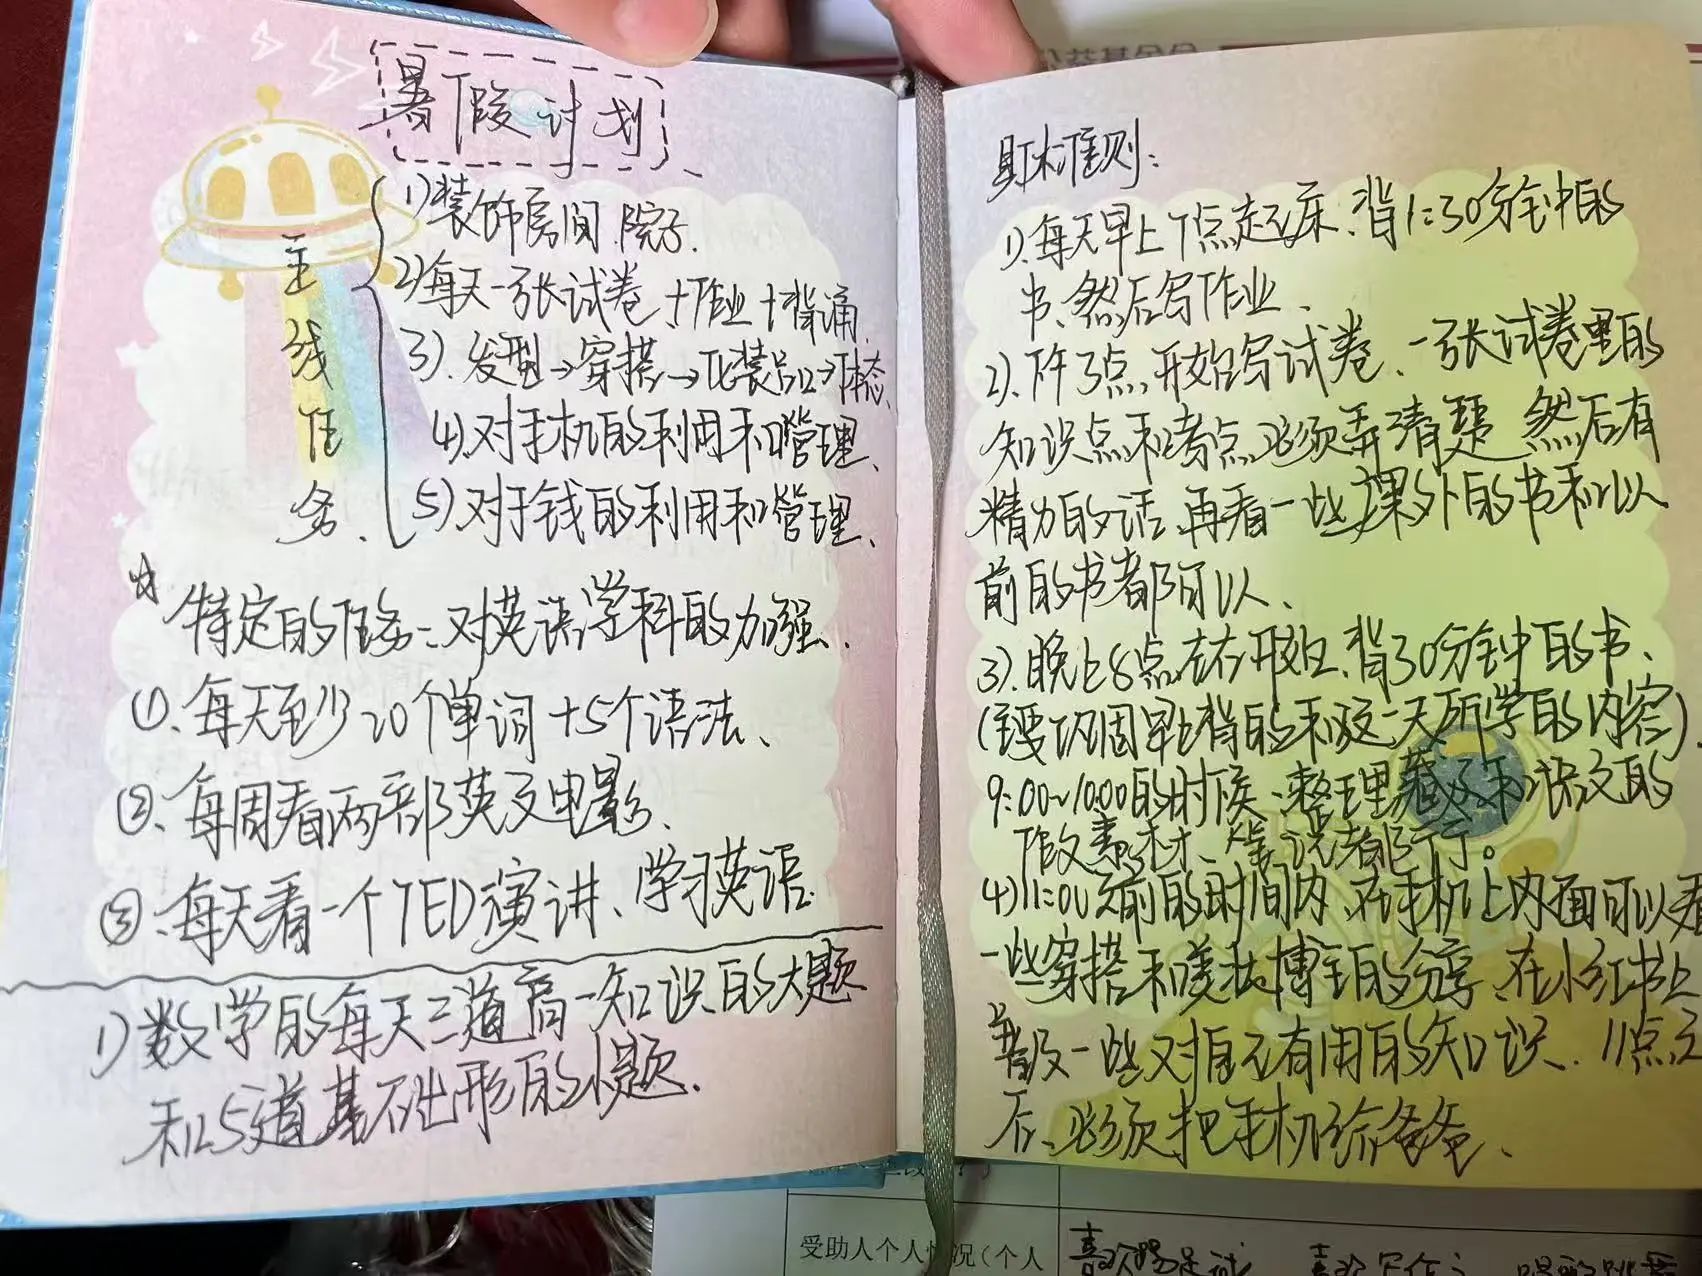 暑假计划
主线任务、
1)装饰房间、院子.
2)每天一张试卷、+作业+背诵.
3)、发型→穿搭→化装品→体态、
4)、对手机的利用和管理、
5)、对于钱的利用和管理、
☆特定的任务:对英语学科的加强、
①、每天至少20个单词+5个语法、
②、每周看两部英文电影、
③、每天看一个TED演讲、学习英语.
1)数学的每天三道高一知识的大题
和5道基础形的小题.
具体准则:
1)、每天早上7点起床、背1:30分钟的
书、然后写作业、
2)、下午3点、开始写试卷、一张试卷里的
知识点和考点、必须弄清楚、然后有
精力的话、再看一些课外的书和以
前的书都可以、
3)、晚上8点左右开始、背30分钟的书、
(主要巩固早上背的和这一天所学的内容)、
9:00~10:00的时候、整理藏文和汉文的
作文素材、小说都可。
4)11:00之前的时间内、在手机上面可以看
一些穿搭和美妆博主的分享、在小红书上
普及一些对自己有用的知识、11点之
后、必须把手机给爸爸、
受助人个人情况(个人
喜欢
喜欢写作文